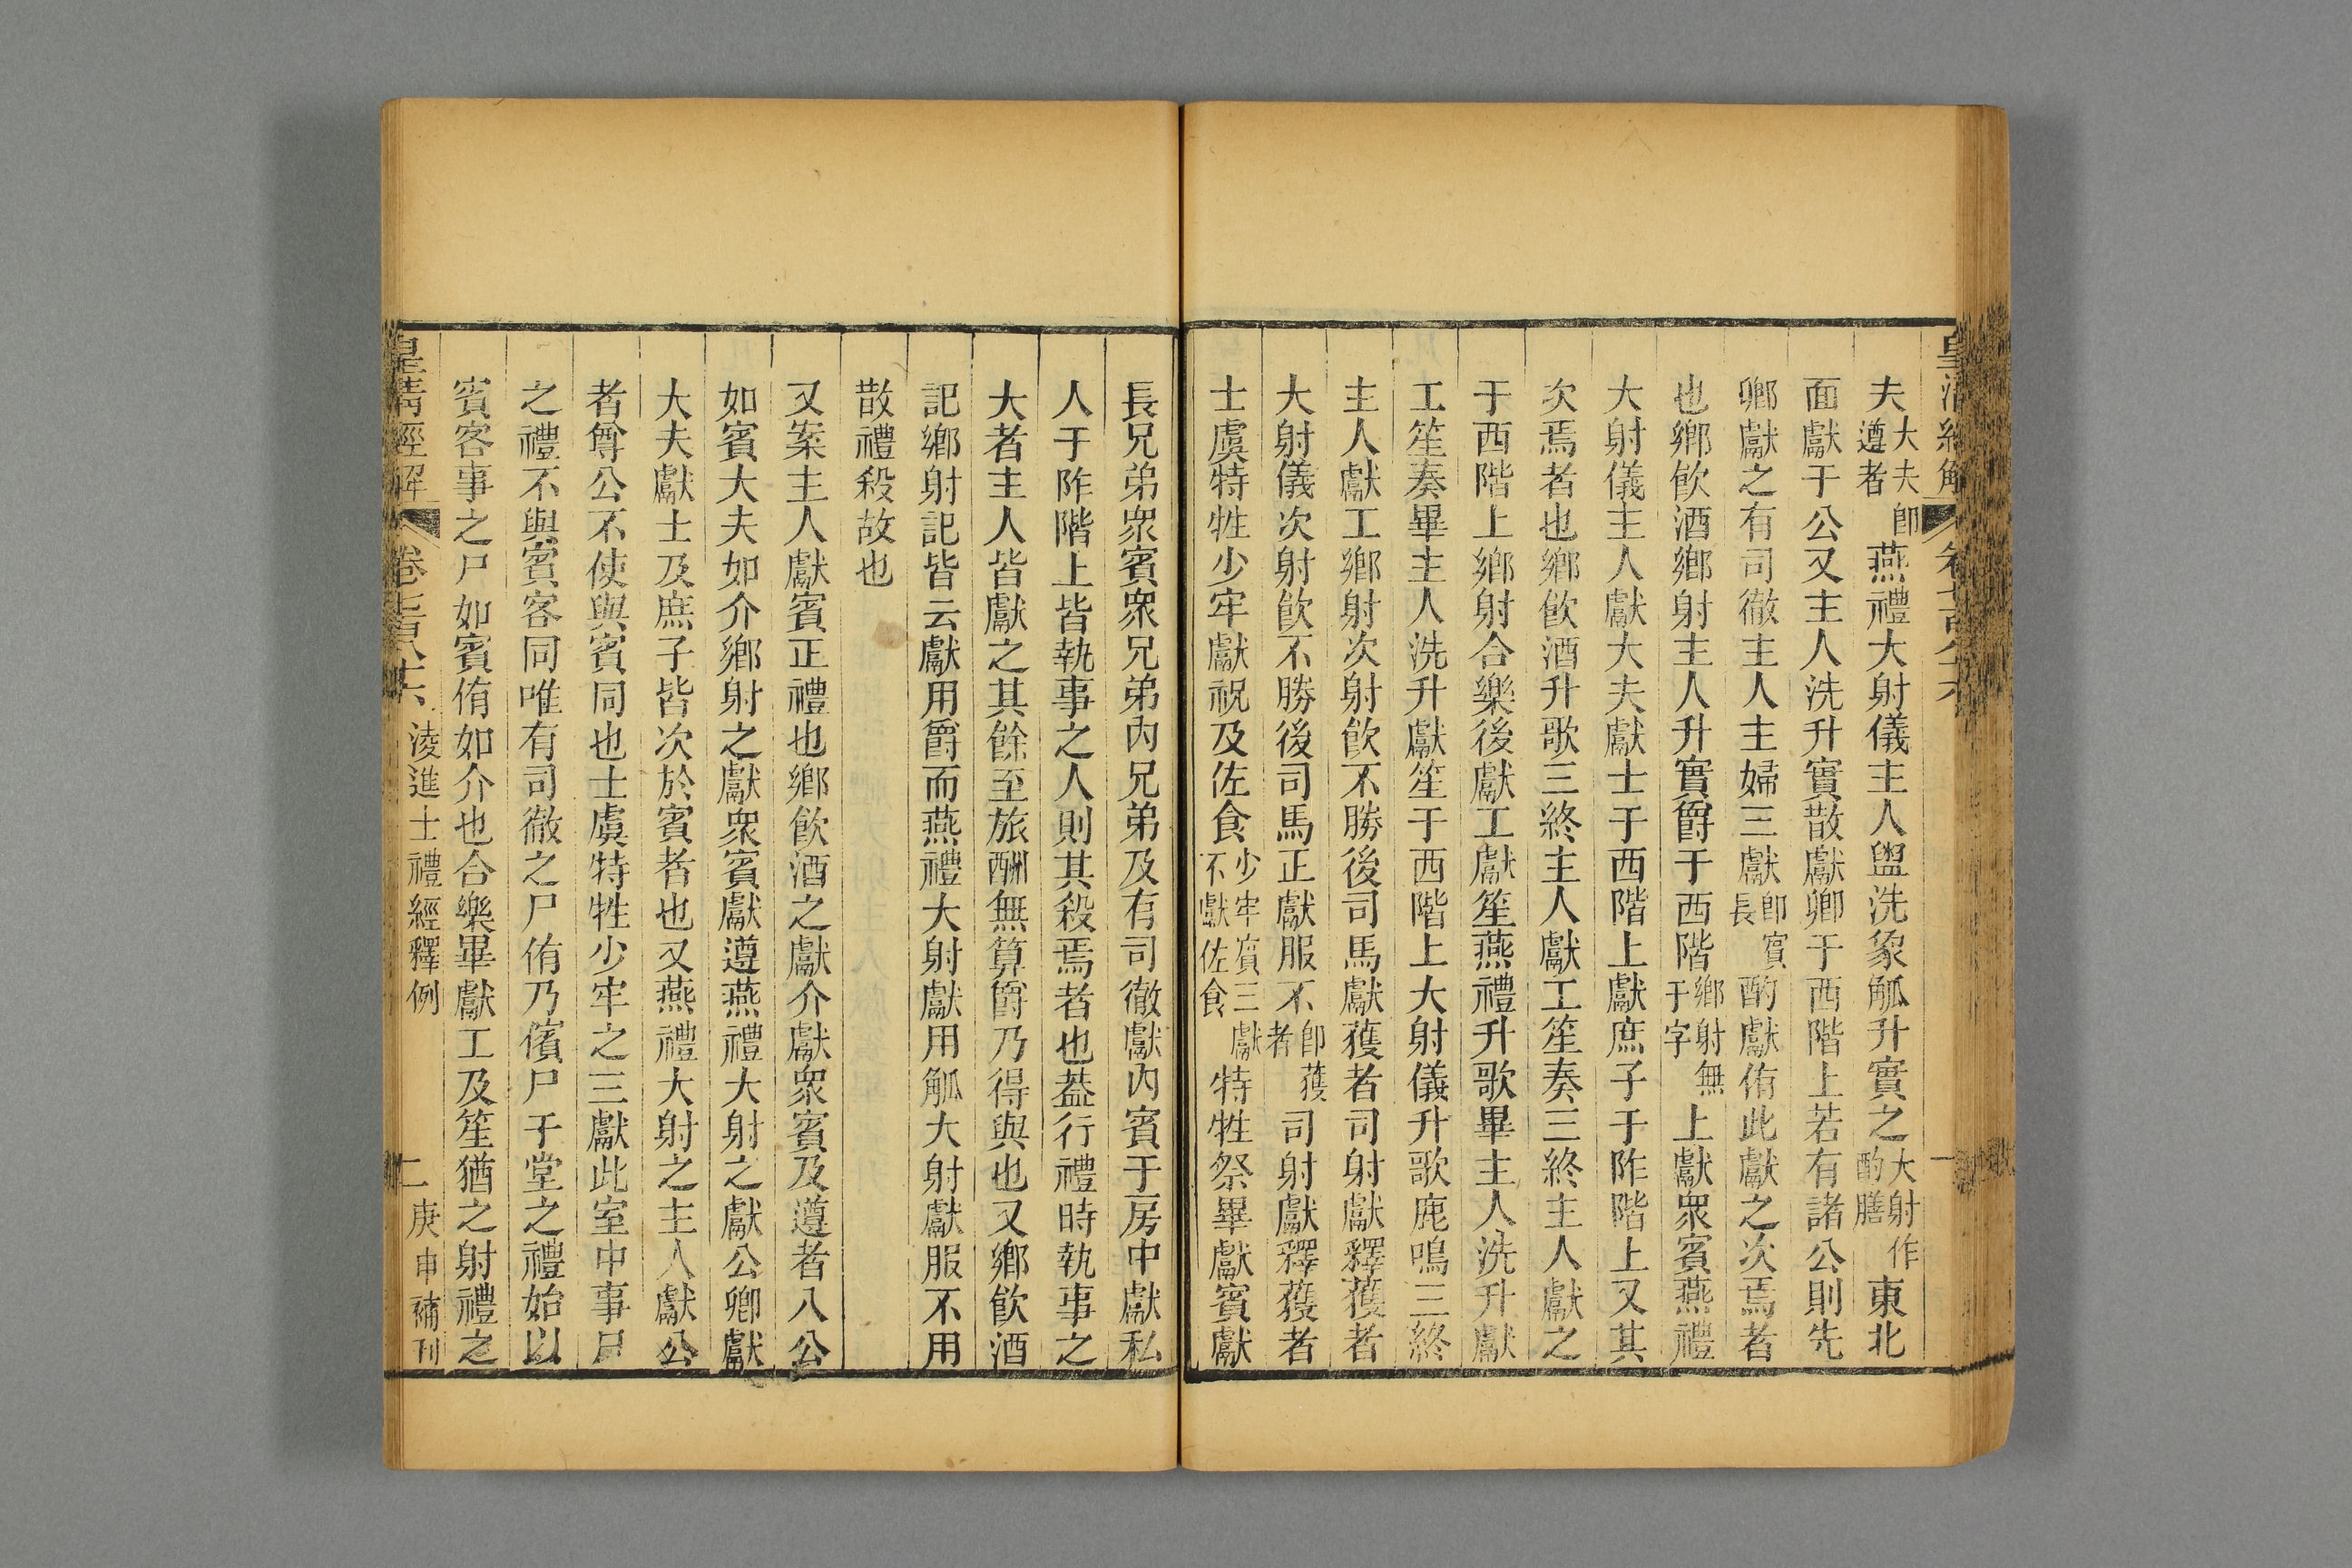 皇清經解 卷七百八十六 一
夫大夫即遵者燕禮大射儀主人盥洗象觚升實之大射作酌膳東北
面獻于公又主人洗升實散獻卿于西階上若有諸公則先
卿獻之有司徹主人主婦三獻即賓長酌獻侑此獻之次焉者
也鄉飲酒鄉射主人升實爵于西階鄉射無于字上獻眾賓燕禮
大射儀主人獻大夫獻士于西階上獻庶子于阼階上又其
次焉者也鄉飲酒升歌三終主人獻工笙奏三終主人獻之
于西階上鄉射合樂後獻工獻笙燕禮升歌畢主人洗升獻
工笙奏畢主人洗升獻笙于西階上大射儀升歌鹿鳴三終
主人獻工鄉射次射飲不勝後司馬獻獲者司射獻釋獲者
大射儀次射飲不勝後司馬正獻服不即獲者司射獻釋獲者
士虞特牲少牢獻祝及佐食少牢賓三獻不獻佐食特牲祭畢獻賓獻
長兄弟眾賓眾兄弟內兄弟及有司徹獻內賓于房中獻私
人于阼階上皆執事之人則其殺焉者也蓋行禮時執事之
大者主人皆獻之其餘至旅酬無算爵乃得與也又鄉飲酒
記鄉射記皆云獻用爵而燕禮大射獻用觚大射獻服不用
散禮殺故也
又案主人獻賓正禮也鄉飲酒之獻介獻眾賓及遵者入公
如賓大夫如介鄉射之獻眾賓獻遵燕禮大射之獻公卿獻
大夫獻士及庶子皆次於賓者也又燕禮大射之主人獻公
者尊公不使與賓同也士虞特牲少牢之三獻此室中事尸
之禮不與賓客同唯有司徹之尸侑乃儐尸于堂之禮始以
賓客事之尸如賓侑如介也合樂畢獻工及笙猶之射禮之
皇清經解 卷七百八十六 淩進士禮經釋例 二 庚申補刊